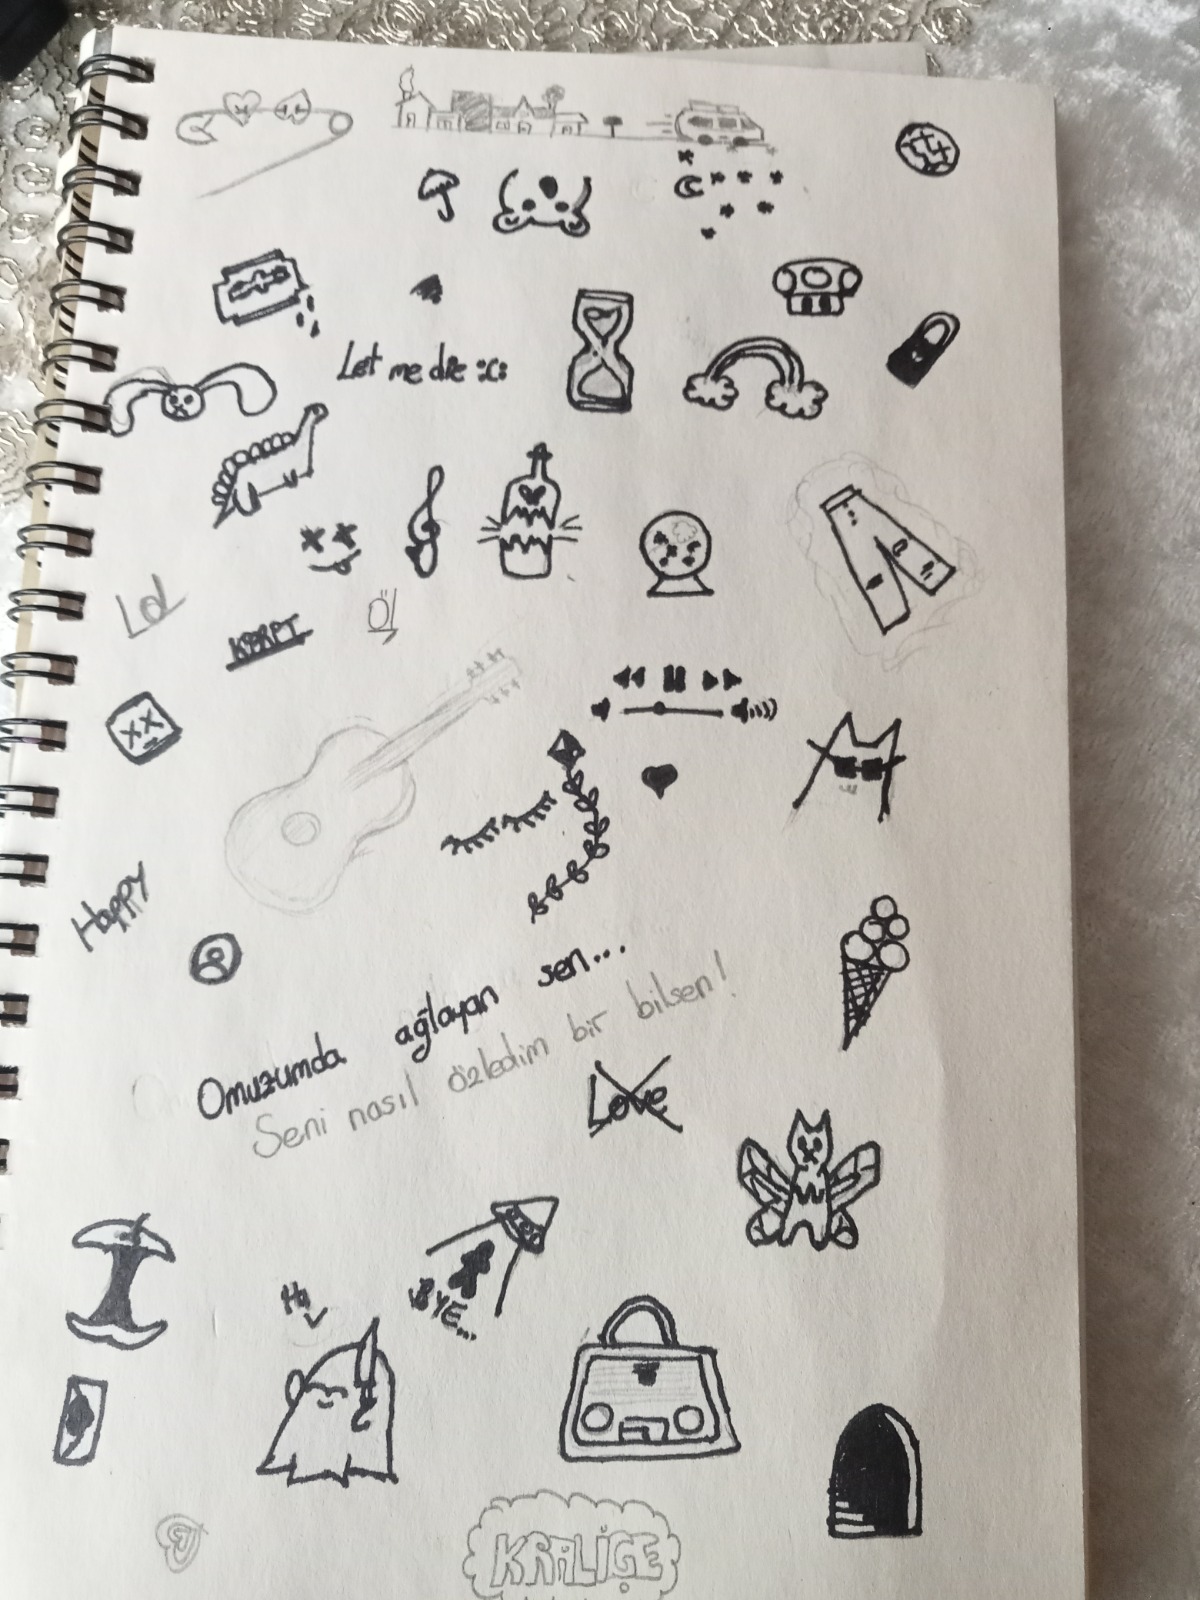 Let me die :(:
Lol
KÖRPT
Öl
Happy
Omuzumda ağlayan sen...
Seni nasıl özledim bir bilsen!
Love
Hi
BYE...
KRALİÇE